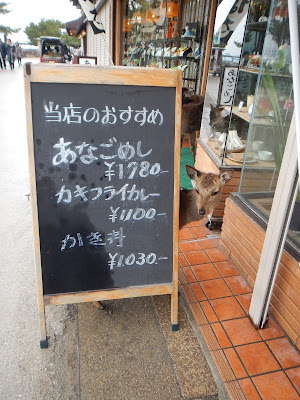 当店のおすすめ
あなごめし
¥1780-
カキフライカレー
¥1100-
かき丼
¥1.030-